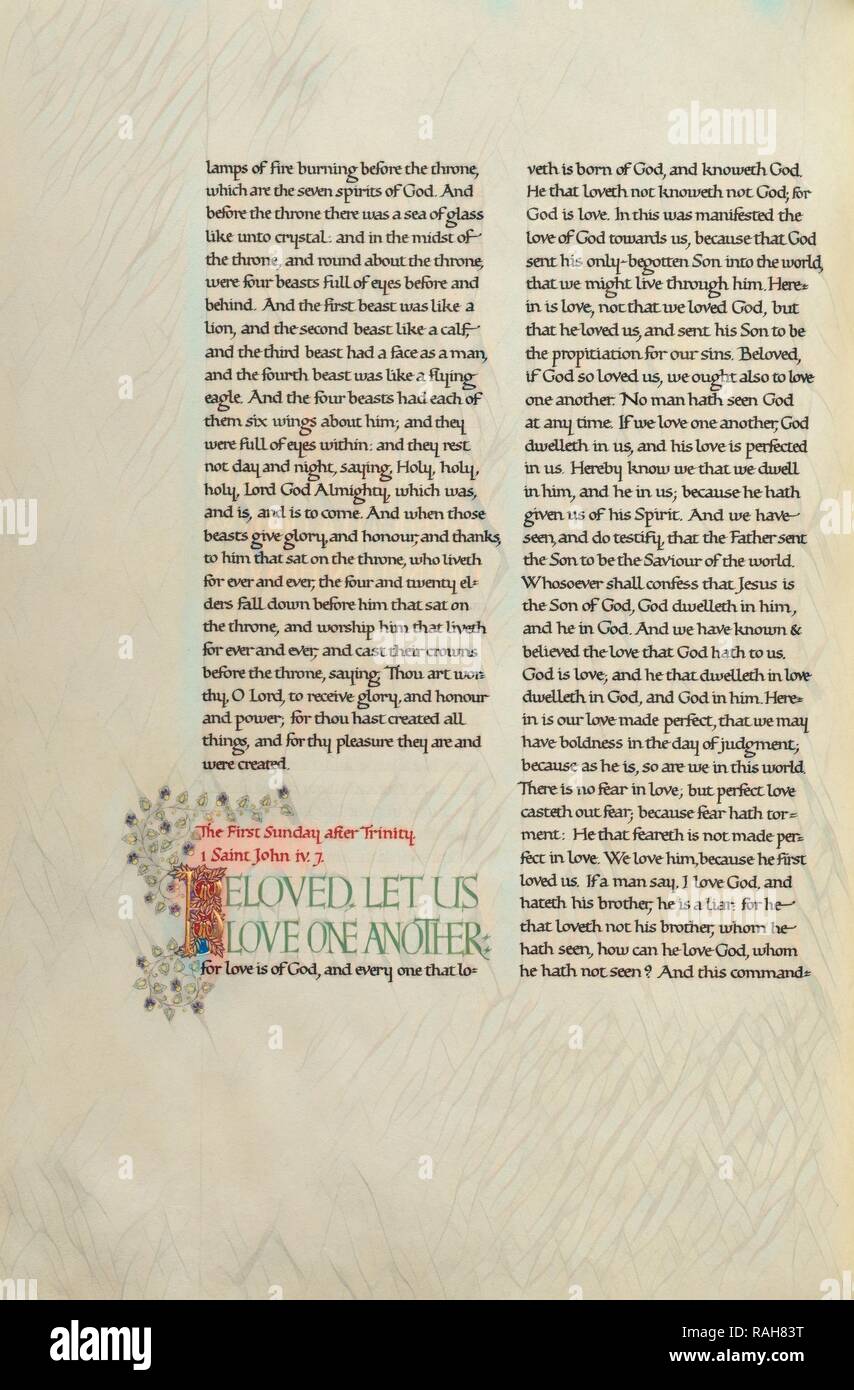 lamps of fire burning before the throne,
which are the seven spirits of God. And
before the throne there was a sea of glass
like unto crystal: and in the midst of
the throne, and round about the throne,
were four beasts full of eyes before and
behind. And the first beast was like a
lion, and the second beast like a calf,
and the third beast had a face as a man,
and the fourth beast was like a flying
eagle. And the four beasts had each of
them six wings about him; and they
were full of eyes within: and they rest
not day and night, saying, Holy, holy,
holy, Lord God Almighty, which was,
and is, and is to come. And when those
beasts give glory, and honour, and thanks,
to him that sat on the throne, who liveth
for ever and ever, the four and twenty el=
ders fall down before him that sat on
the throne, and worship him that liveth
for ever and ever, and cast their crowns
before the throne, saying, Thou art wor=
thy, O Lord, to receive glory, and honour
and power; for thou hast created all
things, and for thy pleasure they are and
were created.
The First Sunday after Trinity.
1 Saint John iv. 7.
BELOVED, LET US
LOVE ONE ANOTHER:
for love is of God, and every one that lo=
veth is born of God, and knoweth God.
He that loveth not knoweth not God; for
God is love. In this was manifested the
love of God towards us, because that God
sent his only-begotten Son into the world,
that we might live through him. Here=
in is love, not that we loved God, but
that he loved us, and sent his Son to be
the propitiation for our sins. Beloved,
if God so loved us, we ought also to love
one another. No man hath seen God
at any time. If we love one another, God
dwelleth in us, and his love is perfected
in us. Hereby know we that we dwell
in him, and he in us; because he hath
given us of his Spirit. And we have
seen, and do testify, that the Father sent
the Son to be the Saviour of the world.
Whosoever shall confess that Jesus is
the Son of God, God dwelleth in him,
and he in God. And we have known &
believed the love that God hath to us.
God is love; and he that dwelleth in love
dwelleth in God, and God in him. Here=
in is our love made perfect, that we may
have boldness in the day of judgment;
because as he is, so are we in this world.
There is no fear in love; but perfect love
casteth out fear; because fear hath tor=
ment: He that feareth is not made per=
fect in love. We love him, because he first
loved us. If a man say, I love God, and
hateth his brother, he is a liar: for he
that loveth not his brother, whom he
hath seen, how can he love God, whom
he hath not seen? And this command=
alamy
alamy
alamy
Image ID: RAH83T
www.alamy.com